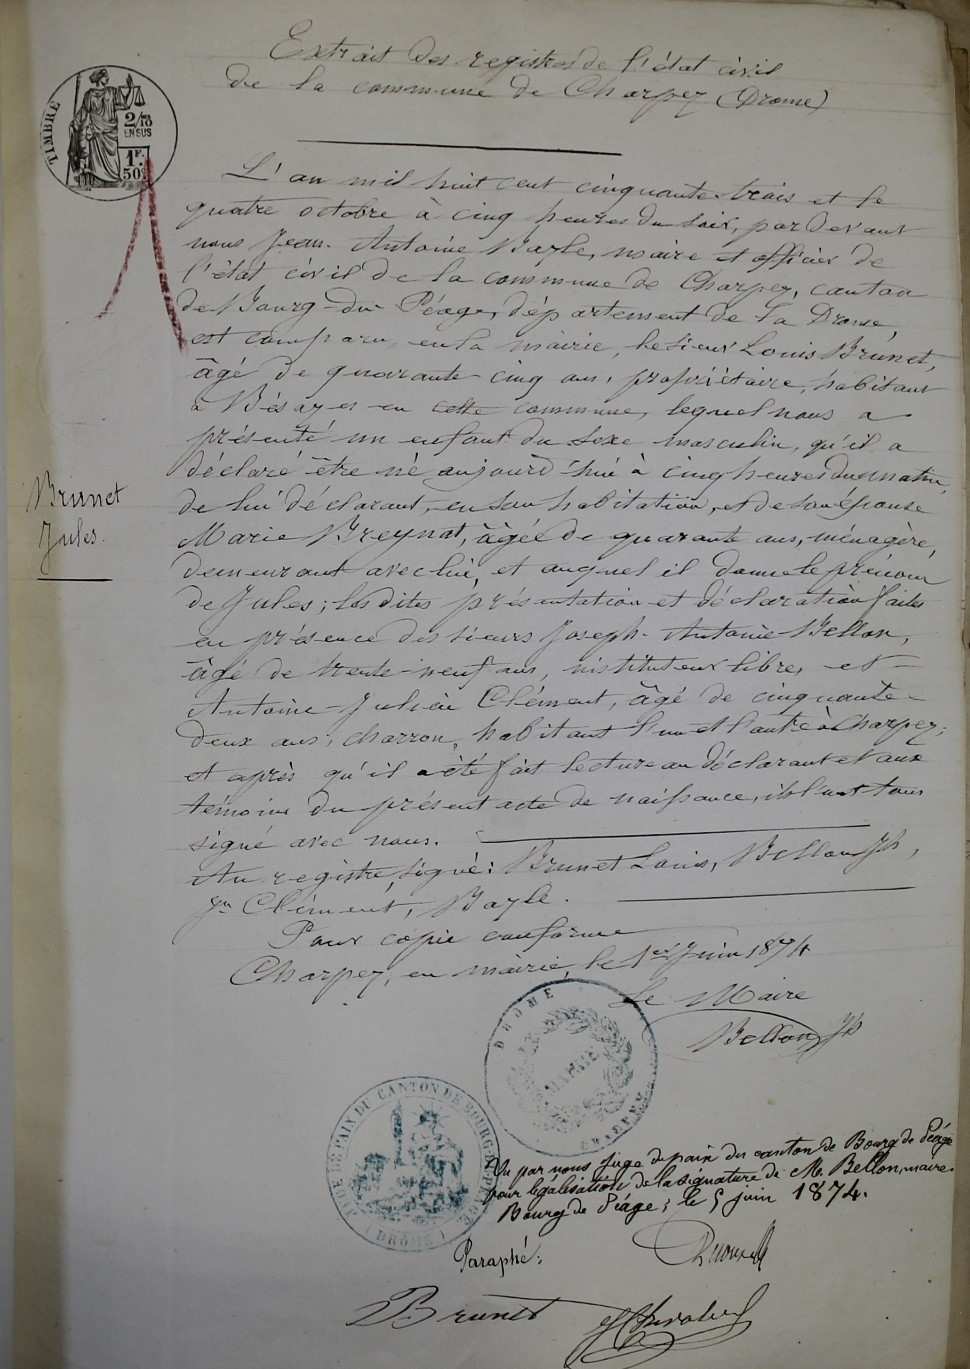 Extrait des registres de l'état civil
de la commune de Charpey (Drome)
TIMBRE
2/10
EN SUS
1F.
50c
L'an mil huit cent cinquante trois et le
quatre octobre à cinq heures du soir, par devant
nous Jean-Antoine Bayle, maire et officier de
l'état civil de la commune de Charpey, canton
de Bourg-du-Péage, département de la Drome,
est comparu en la mairie, le sieur Louis Brunet,
âgé de quarante-cinq ans, propriétaire, habitant
à Bésayes en cette commune, lequel nous a
présenté un enfant du sexe masculin, qu'il a
déclaré être né aujourd'hui à cinq heures du matin,
Brunet
Jules.
de lui déclarant, en son habitation, et de son épouse
Marie Breynat, âgée de quarante ans, ménagère,
demeurant avec lui, et auquel il donne le prénom
de Jules; lesdites présentation et déclaration faites
en présence des sieurs Joseph-Antoine Bellon,
âgé de trente-neuf ans, instituteur libre, et
Antoine-Julien Clément, âgé de cinquante-
deux ans, charron, habitant l'un et l'autre à Charpey;
et après qu'il a été fait lecture au déclarant et aux
témoins du présent acte de naissance, ils l'ont tous
signé avec nous.
Au registre, signé: Brunet Louis, Bellon Jh,
Jn Clément, Bayle.
Pour copie conforme
Charpey, en mairie, le 1er Juin 1874
Le Maire
Bellon Jh
DROME
MAIRIE
CHARPEY
JUGE DE PAIX DU CANTON DE BOURG-DE-PEAGE
(DROME)
Vu par nous Juge de paix du canton de Bourg de Péage
pour légalisation de la signature de M. Bellon, maire.
Bourg de Péage, le 5 juin 1874.
Paraphé:
Brunet